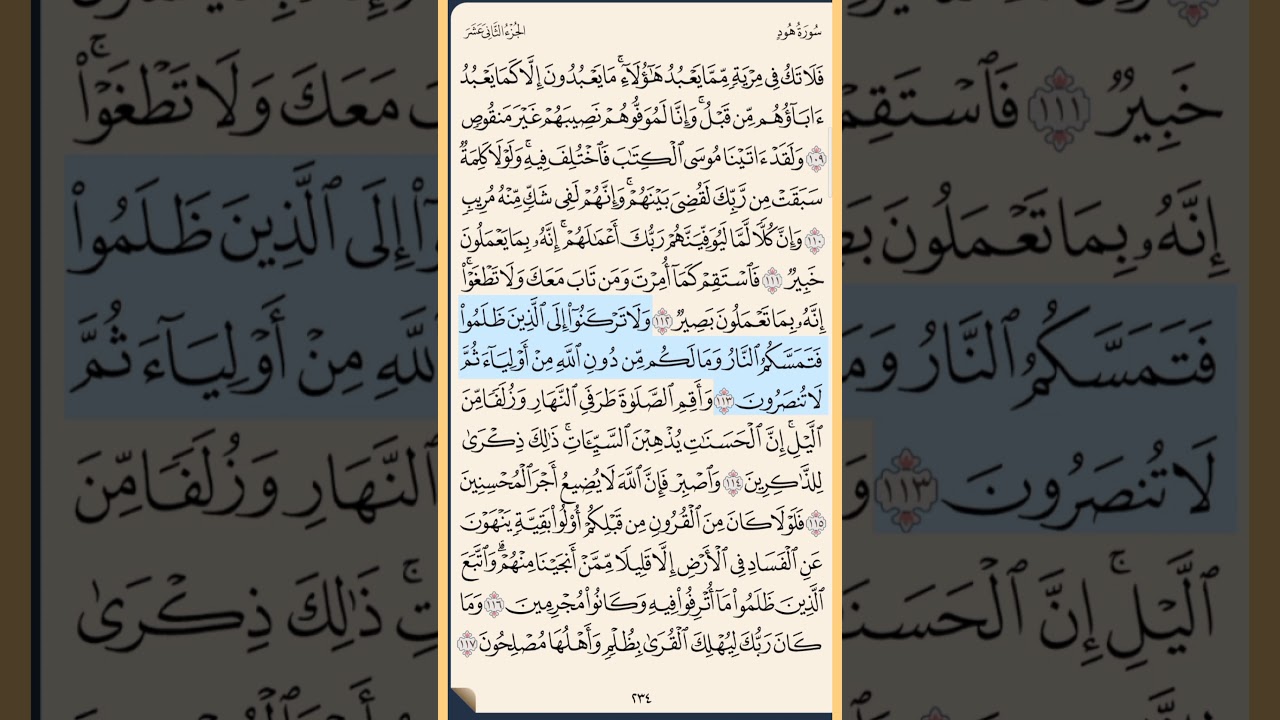 سُورَةُ هُودٍ
الجُزْءُ الثَّانِى عَشَرَ
فَلَا تَكُ فِى مِرْيَةٍ مِّمَّا يَعْبُدُ هَٰٓؤُلَآءِ ۚ مَا يَعْبُدُونَ إِلَّا كَمَا يَعْبُدُ
ءَابَآؤُهُم مِّن قَبْلُ ۚ وَإِنَّا لَمُوَفُّوهُمْ نَصِيبَهُمْ غَيْرَ مَنقُوصٍ
١٠٩ وَلَقَدْ ءَاتَيْنَا مُوسَى ٱلْكِتَٰبَ فَٱخْتُلِفَ فِيهِ ۚ وَلَوْلَا كَلِمَةٌ
سَبَقَتْ مِن رَّبِّكَ لَقُضِىَ بَيْنَهُمْ ۚ وَإِنَّهُمْ لَفِى شَكٍّ مِّنْهُ مُرِيبٍ
١١٠ وَإِنَّ كُلًّا لَّمَّا لَيُوَفِّيَنَّهُمْ رَبُّكَ أَعْمَٰلَهُمْ ۚ إِنَّهُۥ بِمَا يَعْمَلُونَ
خَبِيرٌ ١١١ فَٱسْتَقِمْ كَمَآ أُمِرْتَ وَمَن تَابَ مَعَكَ وَلَا تَطْغَوْا۟ ۚ
إِنَّهُۥ بِمَا تَعْمَلُونَ بَصِيرٌ ١١٢ وَلَا تَرْكَنُوٓا۟ إِلَى ٱلَّذِينَ ظَلَمُوا۟
فَتَمَسَّكُمُ ٱلنَّارُ وَمَا لَكُم مِّن دُونِ ٱللَّهِ مِنْ أَوْلِيَآءَ ثُمَّ
لَا تُنصَرُونَ ١١٣ وَأَقِمِ ٱلصَّلَوٰةَ طَرَفَىِ ٱلنَّهَارِ وَزُلَفًا مِّنَ
ٱلَّيْلِ ۚ إِنَّ ٱلْحَسَنَٰتِ يُذْهِبْنَ ٱلسَّيِّـَٔاتِ ۚ ذَٰلِكَ ذِكْرَىٰ
لِلذَّٰكِرِينَ ١١٤ وَٱصْبِرْ فَإِنَّ ٱللَّهَ لَا يُضِيعُ أَجْرَ ٱلْمُحْسِنِينَ
١١٥ فَلَوْلَا كَانَ مِنَ ٱلْقُرُونِ مِن قَبْلِكُمْ أُو۟لُوا۟ بَقِيَّةٍ يَنْهَوْنَ
عَنِ ٱلْفَسَادِ فِى ٱلْأَرْضِ إِلَّا قَلِيلًا مِّمَّنْ أَنجَيْنَا مِنْهُمْ ۗ وَٱتَّبَعَ
ٱلَّذِينَ ظَلَمُوا۟ مَآ أُتْرِفُوا۟ فِيهِ وَكَانُوا۟ مُجْرِمِينَ ١١٦ وَمَا
كَانَ رَبُّكَ لِيُهْلِكَ ٱلْقُرَىٰ بِظُلْمٍ وَأَهْلُهَا مُصْلِحُونَ ١١٧
٢٣٤